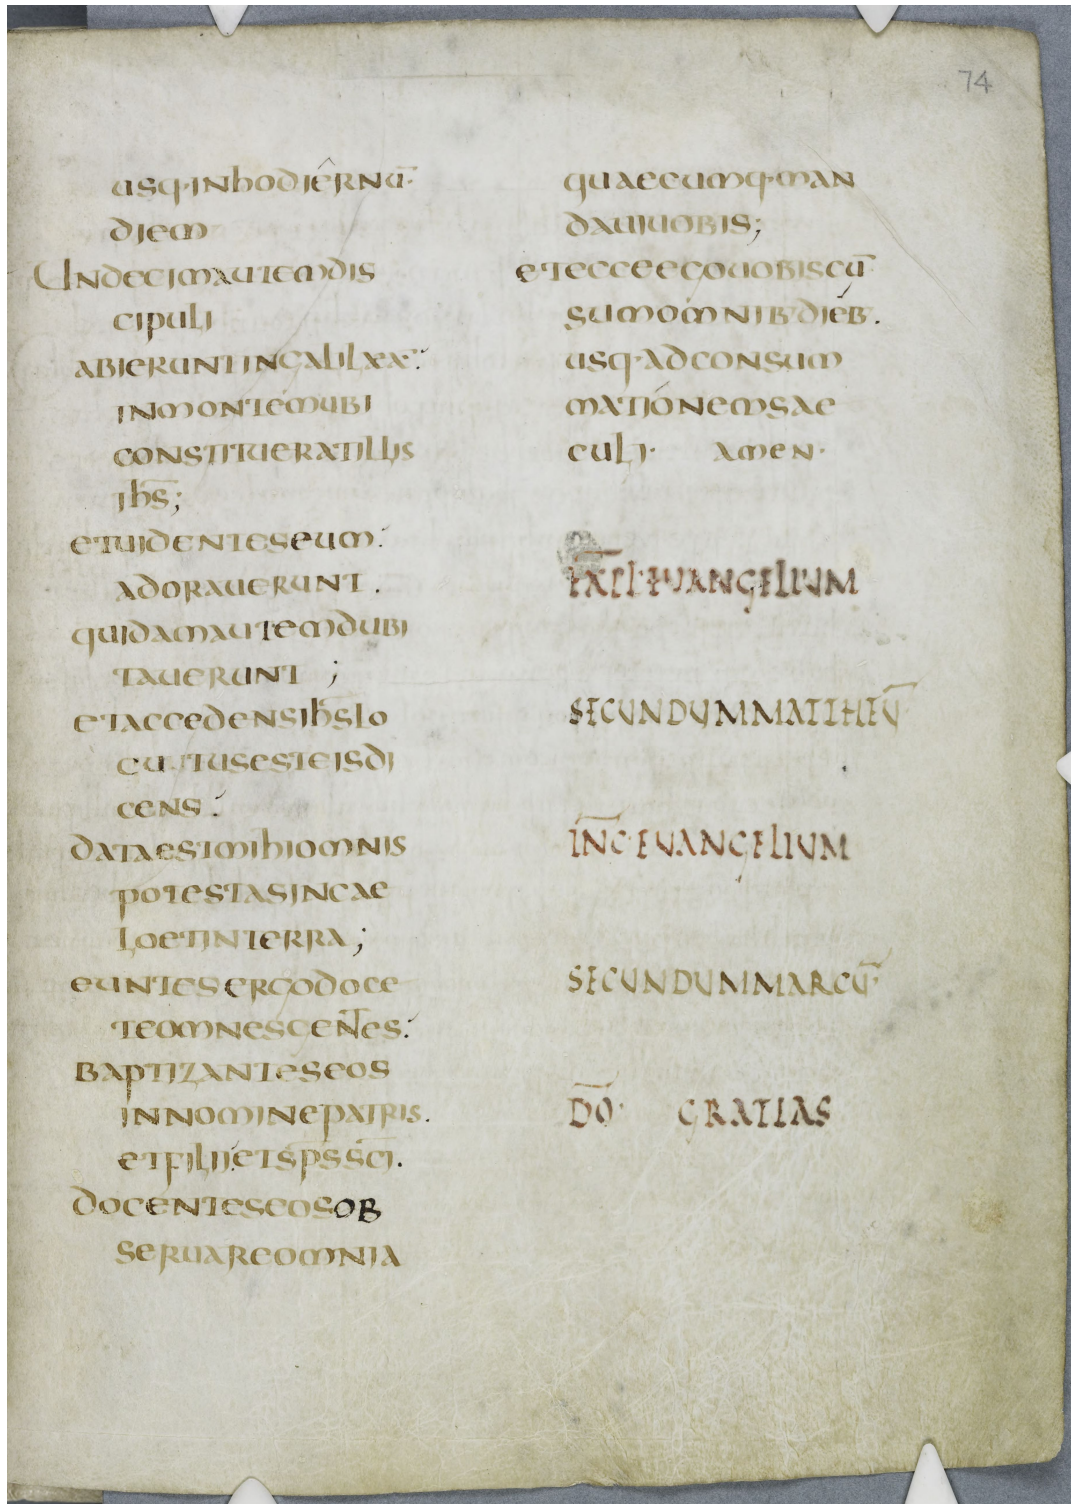 74
usq·inhodiernū·
diem
Undecimautemdis
cipuli
abieruntingalilaea·
inmontemubi
constitueratillis
ih̄s;
etuidenteseum·
adorauerunt.
quidamautemdubi
tauerunt;
etaccedensih̄slo
cutusesteisdi
cens·
dataestmihiomnis
potestasincae
loetinterra;
euntesergodoce
teomnesgen̄tes·
baptizanteseos
innominepatris.
etfiliietsp̄ssc̄i.
docenteseosob
seruareomnia
quaecumq·man
dauiuobis;
etecceegouobiscū
sumomnib·dieb·.
usq·adconsum
mationemsae
culi· amen·
EUANGELIUM
SECUNDUMMATTHEŪ
IN̄C·EUANGELIUM
SECUNDUMMARCŪ·
D̄O· GRATIAS